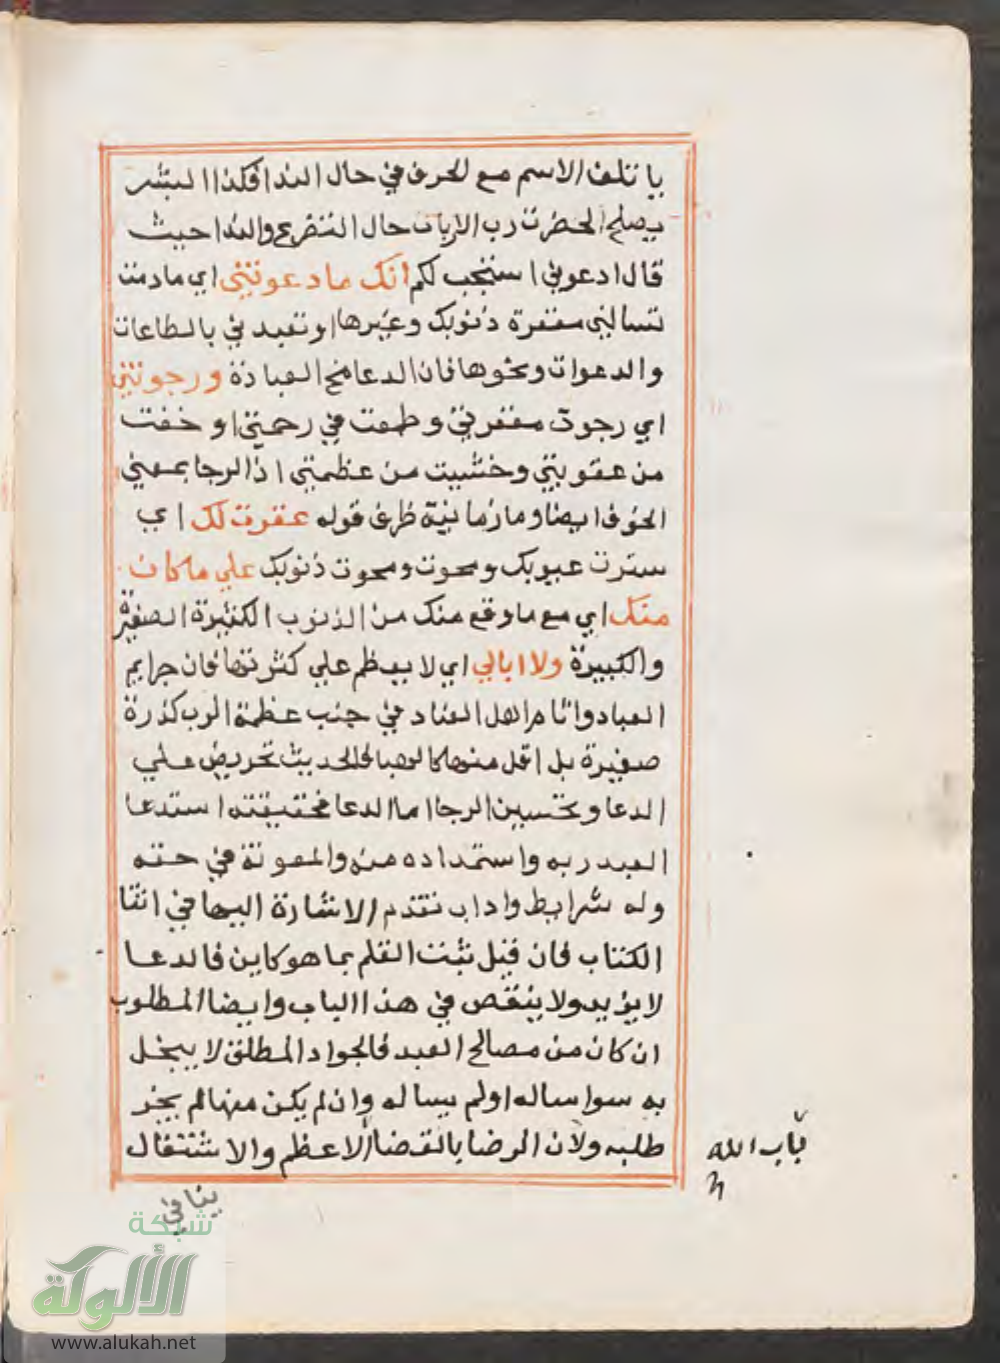 يا تلف الاسم مع الحرف في حال الندا فكذا البشر
يصلح لحضرت رب الارباب حال التضرع والندا حيث
قال ادعوني استجب لكم انك ما دعوتني اي ما دمت
تسالني مغفرة ذنوبك وغيرها او تعبدني بالطاعات
والدعوات ونحوها فان الدعا مخ العبادة ورجوتني
اي رجوت مغفرتي وطمعت في رحمتي او خفت
من عقوبتي وخشيت من عظمتي اذ الرجا بمعني
الخوف ايضا وما زمانية ظرف قوله غفرت لك اي
سترت عيوبك ومحوت ومحوت ذنوبك علي ما كان
منك اي مع ما وقع منك من الذنوب الكثيرة الصغيرة
والكبيرة ولا ابالي اي لا يعظم علي كثرتها فان جرايم
العباد واثام اهل العناد في جنب عظمة الرب كذرة
صغيرة بل اقل منها كالهبا فالحديث تحريض علي
الدعا وتحسين الرجا اما الدعا فحقيقته استدعا
العبد ربه واستمداده منه والمعونة في حقه
وله شرايط واداب تتقدم الاشارة اليها في اثنا
الكتاب فان قيل ثبت القلم بما هو كاين فالدعا
لا يزيد ولا ينقص في هذا الباب وايضا المطلوب
ان كان من مصالح العبد فالجواد المطلق لا يبخل
به سوا ساله او لم يساله وان لم يكن منها لم يجز
طلبه ولان الرضا بالقضا الاعظم والاشتغال
باب الله
ينافي
شبكة
الألوكة
www.alukah.net